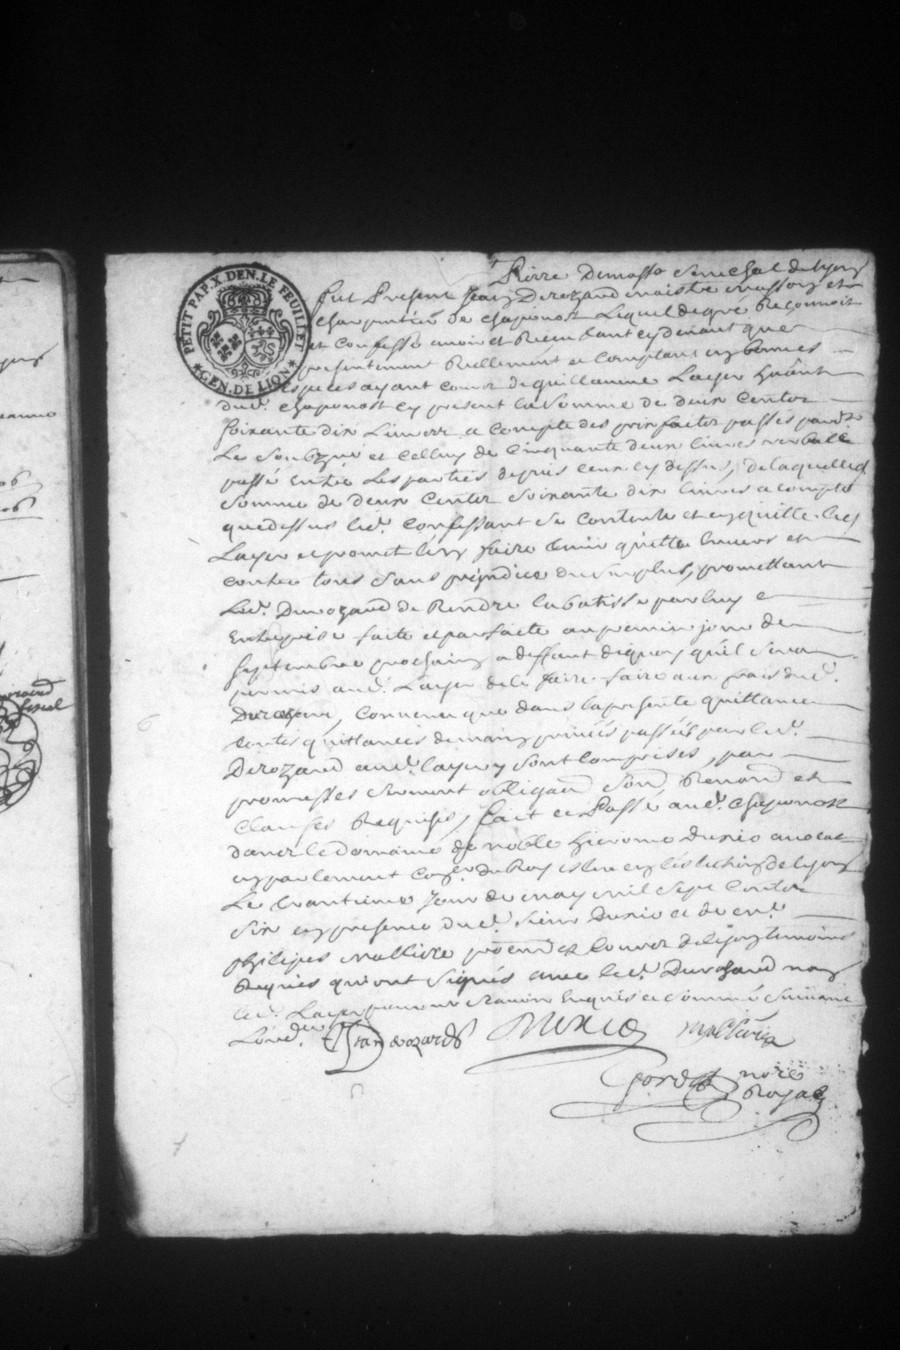 PETIT PAP. X. DEN. LE FEUILLET
GEN. DE LION
Pierre Demasso Senechal de Lyon
fut Present Jean Derozard maistre masson et
charpentier de chaponost Lequel de gré Reconnoit
et Confesse avoir et Reeu tant cy devant que
presentement Reellement et Comptant en bonnes
especes ayant cours de guillaume Layer
dud. chaponost cy present la Somme de deux Centz
soixante dix Livres a Compte des prixfaitz passés pard.
Le Soubzné et Celluy de Cinquante deux livres verballe.
passé Entre Les parties depuis ceux cy dessus, de laquelled
Somme de deux Centz Soixante dix livres a compte
que dessus led. Confessant Se Contente et en quitte led
Layer et promet l'en faire tenir quitte Envers et
contre tous Sans prejudice du Surplus, promettant
Led. Derozard de Rendre la batisse par luy
Entreprise faite et parfaite au premier jour de
Septembre prochain a deffaut de quoy qu'il Sera
permis aud. Layer de le faire faire aux frais dud.
Derozard, Convenu que dans la presente quittance
touttes quittances de main privées passés par led.
Derozard aud. layer y sont Comprises, par
promesses Serment obligaon Soumd Renond et
Clauses Requises, fait et Passé aud. Chaponost
dans le Domaine de noble hierome Dunio avocat
en parlement Coner. du Roy eslu en l'eslection de Lyon
Le trantieme Jour de may mil Sept Centz
Six en presence dud. Sieur Dunio et de
philipes malliere et Lyon temoins
Requis qui ont Signés avec led. Derozard non
led. Layer pour ne Scavoir Enquis et Sommé Suivant
L'ord.
Jean derozard malliere
notre
Royal